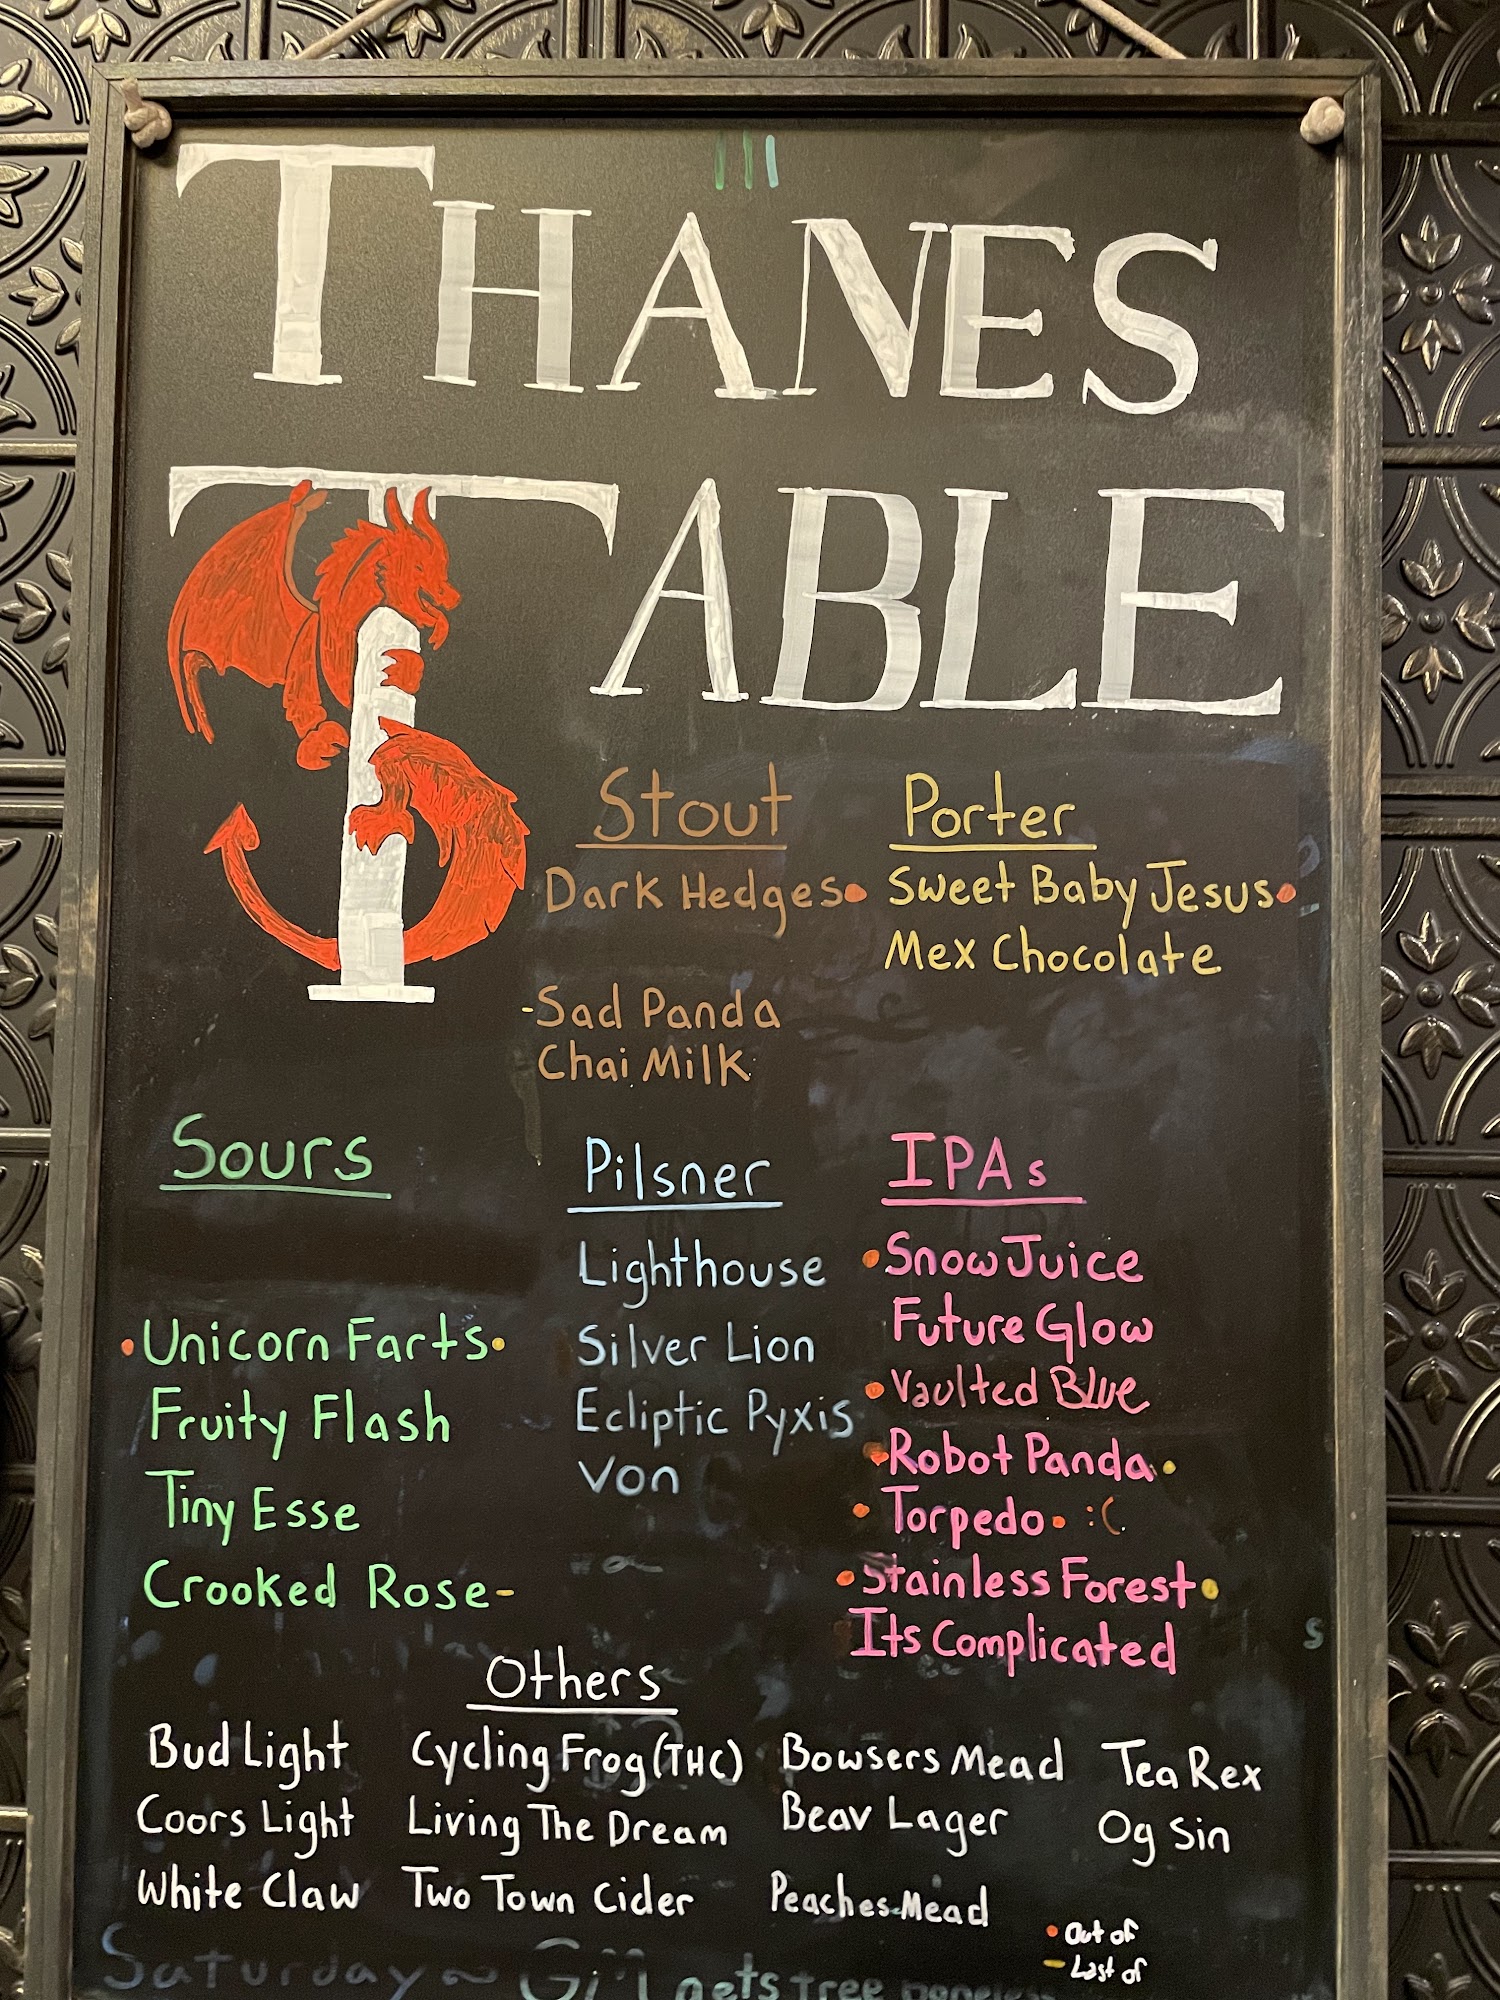 THANES
TABLE
Stout
Dark Hedges
-Sad Panda
Chai Milk
Porter
Sweet Baby Jesus
Mex Chocolate
Sours
Unicorn Farts
Fruity Flash
Tiny Esse
Crooked Rose-
Pilsner
Lighthouse
Silver Lion
Ecliptic Pyxis
Von
IPAs
Snow Juice
Future Glow
Vaulted Blue
Robot Panda
Torpedo :(
Stainless Forest
Its Complicated
S
Others
Bud Light
Coors Light
White Claw
Cycling Frog (THC)
Living The Dream
Two Town Cider
Bowsers Mead
Beav Lager
Peaches-Mead
Tea Rex
Og Sin
• Out of
- Last of
Saturday ~ GM gets free